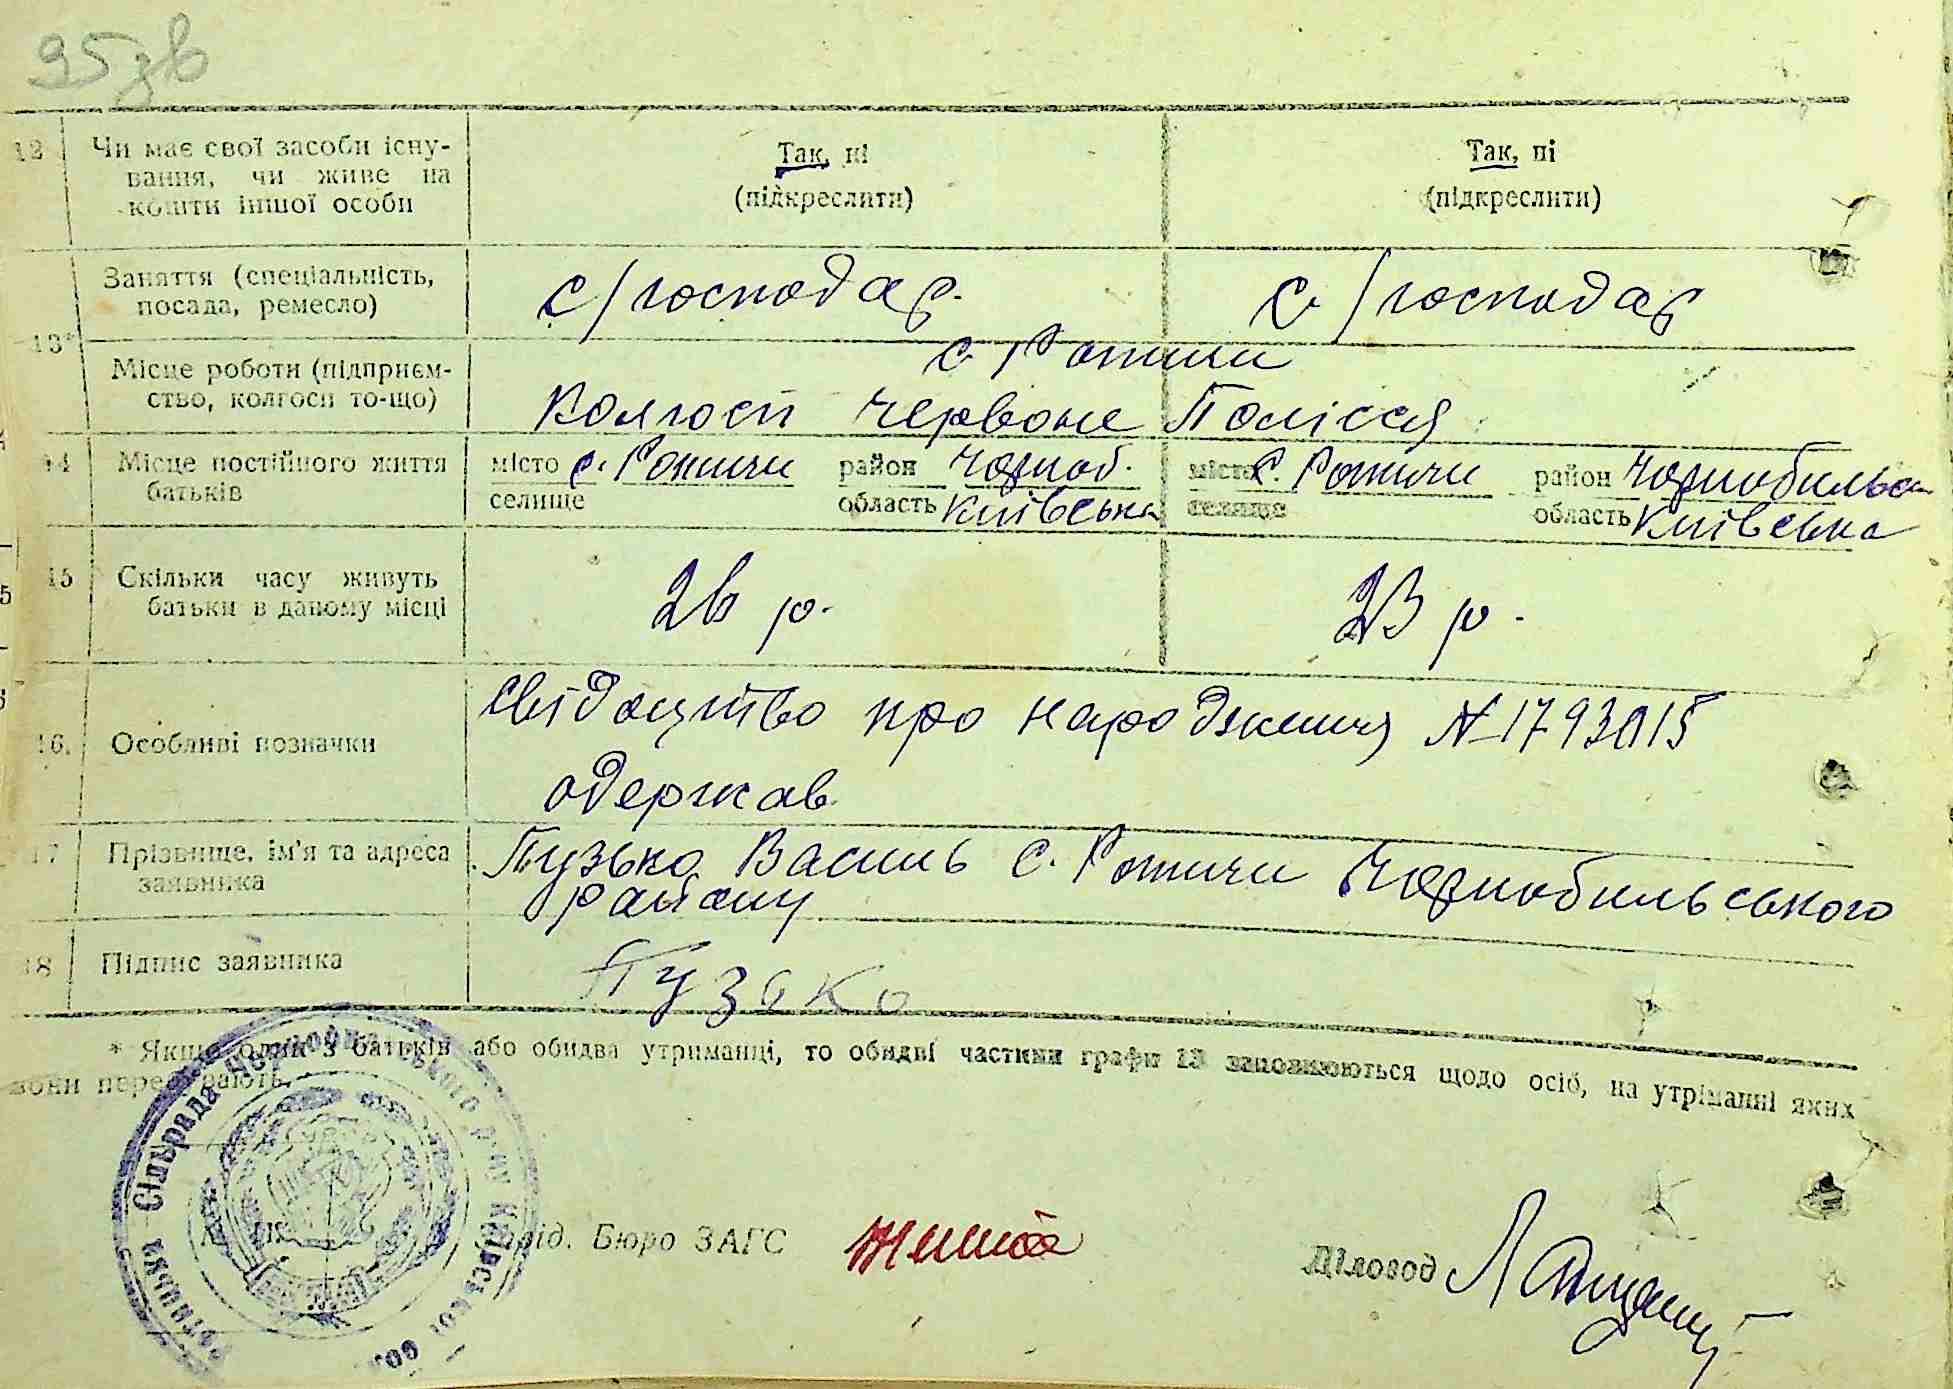 95 зв
12 Чи має свої засоби існу-
вання, чи живе на
кошти іншої особи
Так, ні
(підкреслити)
Так, ні
(підкреслити)
13* Заняття (спеціальність,
посада, ремесло)
с/господар.
с/господар
Місце роботи (підприєм-
ство, колгосп то-що)
с. Ротичи
Колгосп Червоне Полісся
14 Місце постійного життя
батьків
місто с. Ротичи район Чорноб.
селище область Київська
місто с. Ротичи район Чорнобильськ
селище область Київська
15 Скільки часу живуть
батьки в даному місці
26 р.
23 р.
16. Особливі позначки
Свідоцтво про народження № 1793015
одержав
17 Прізвище, ім'я та адреса
заявника
Пузько Василь с. Ротичи Чорнобильського
району
18 Підпис заявника
Пузяко
* Якщо один з батьків або обидва утриманці, то обидві частини графи 13 заповнюються щодо осіб, на утриманні яких
вони перебувають.
Сільрада Чорнобильського р-ну Київської об
Завід. Бюро ЗАГС
Діловод